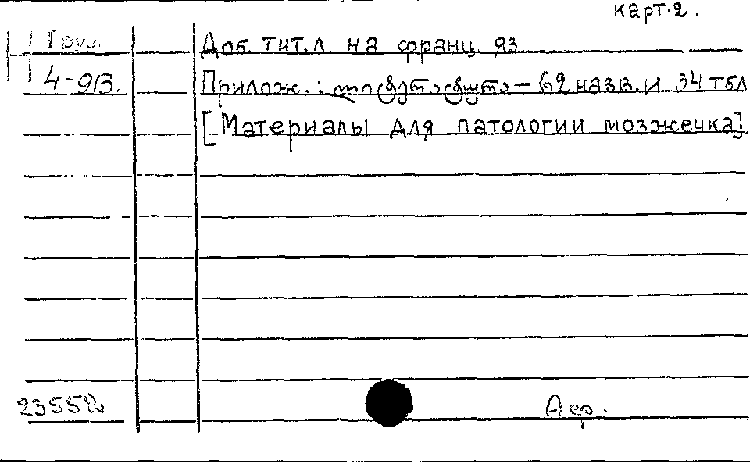 карт. 2.
Груз. Доб. тит. л на франц. яз
4-913. Прилож.: ლიტერატურა — 62 назв. и 34 табл
[Материалы для патологии мозжечка]
23552